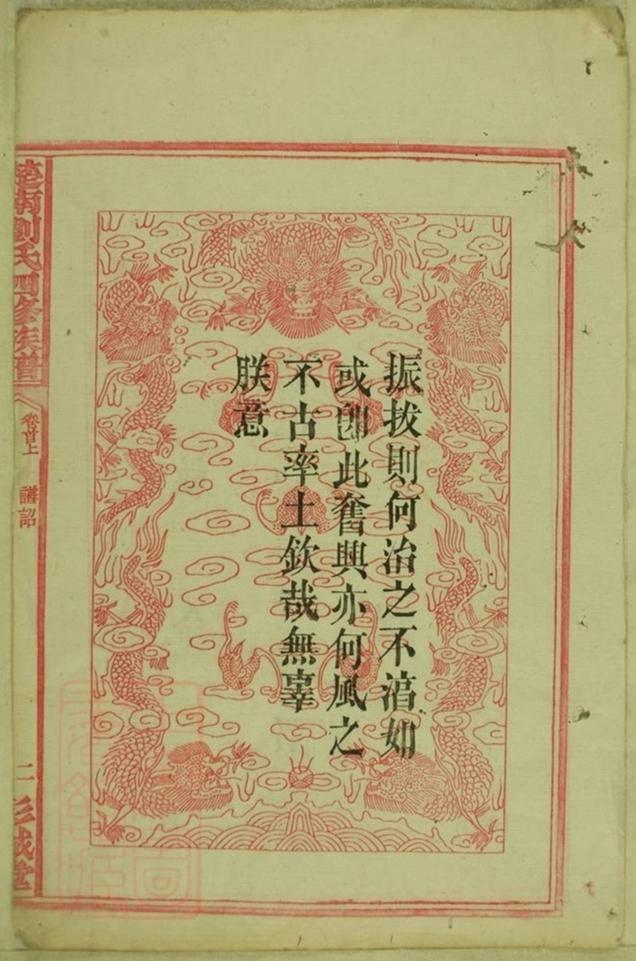 振拔則何治之不滈如
或卽此奮興亦何風之
不古率土欽哉無辜
朕意
楚南劉氏四修族譜
卷首上 譜詔
二 彭城堂